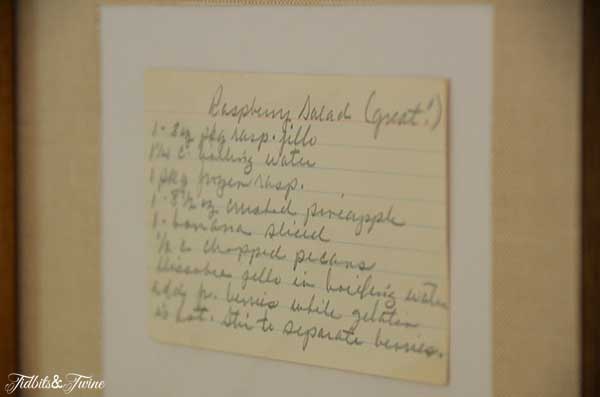 Raspberry Salad (great!)
1- 8oz pkg rasp. jello
1½ c. boiling water
1 pkg frozen rasp.
1- 8½ oz crushed pineapple
1- banana sliced
½ c chopped pecans
Dissolve jello in boiling water
add fr. berries while gelatin
is hot. Stir to separate berries.
Tidbits&Twine